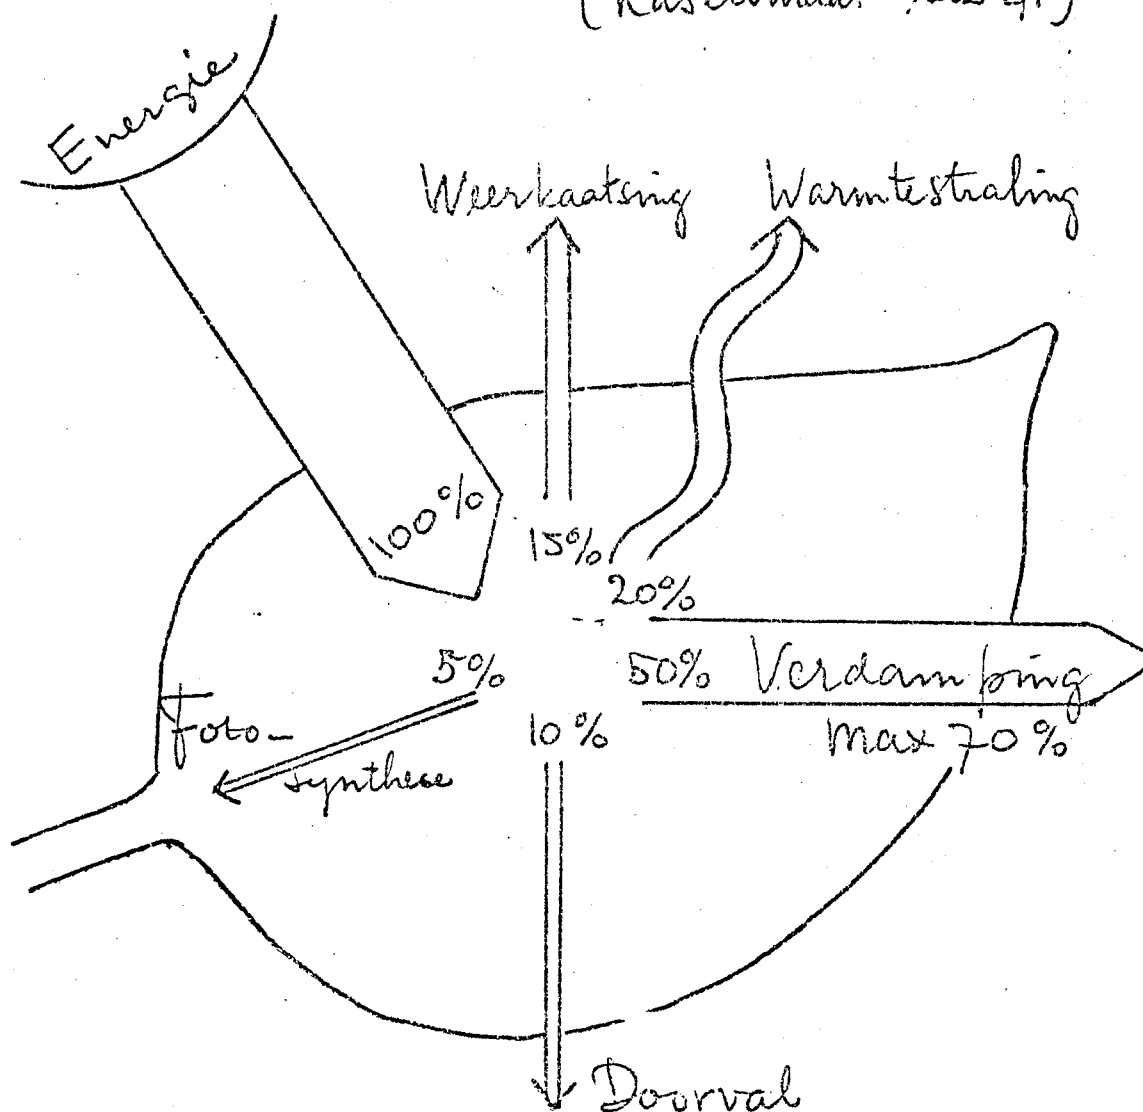 Energie
Weerkaatsing
Warmtestraling
100%
15%
20%
5%
50% Verdamping
Foto-
synthese
10%
max 70%
Doorval